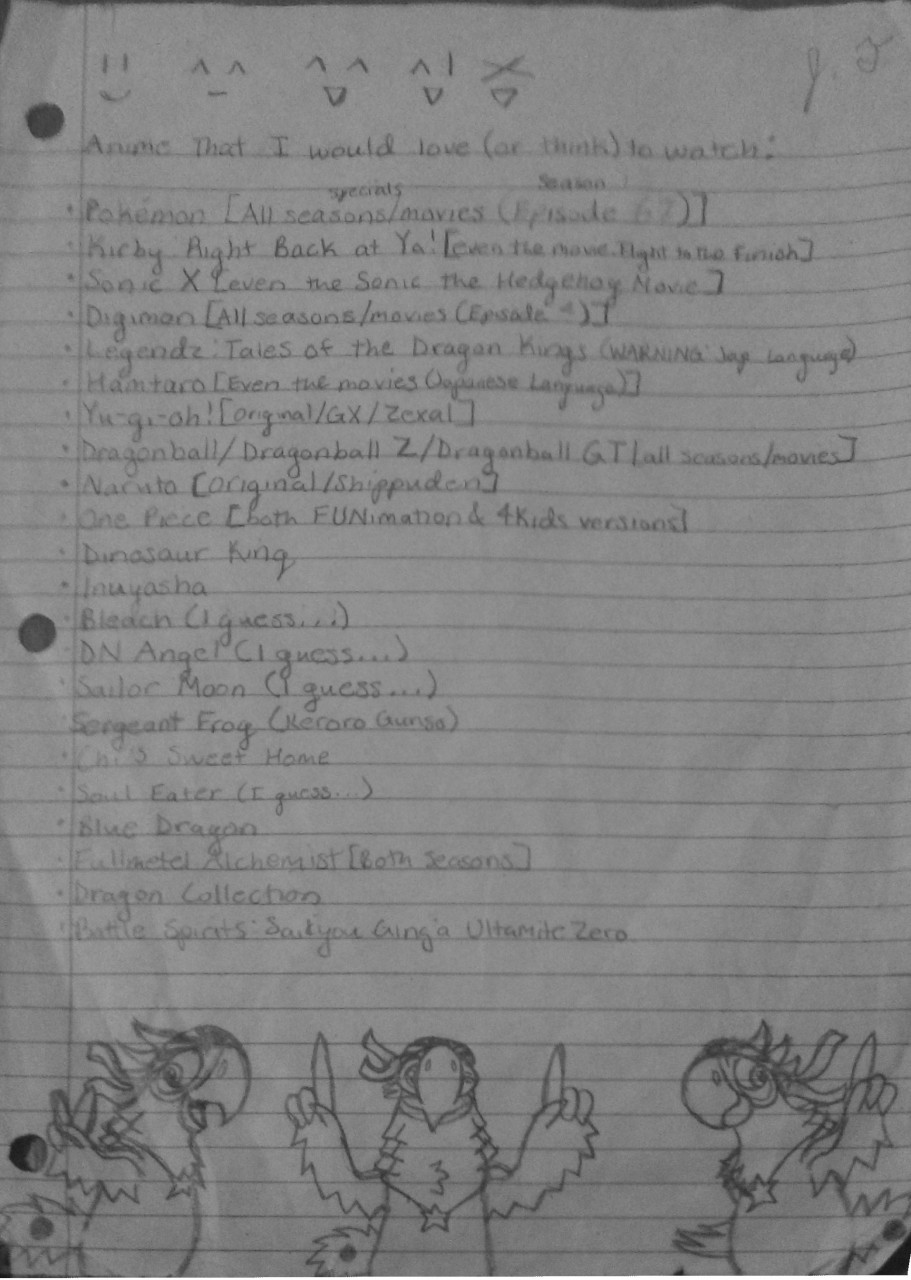 Anime That I would love (or think) to watch:
specials Season
· Pokémon [All seasons/movies (Episode )]
· Kirby Right Back at Ya! [even the movie Fight to the Finish]
· Sonic X [even the Sonic the Hedgehog Movie]
· Digimon [All seasons/movies (Episode )]
· Legendz: Tales of the Dragon Kings (WARNING: Jap Language)
· Hamtaro [Even the movies (Japanese Language)]
· Yu-gi-oh! [original/GX/Zexal]
· Dragonball/Dragonball Z/Dragonball GT [all seasons/movies]
· Naruto [original/Shippuden]
· One Piece [both FUNimation & 4Kids versions]
· Dinosaur King
· Inuyasha
· Bleach (I guess...)
· DN Angel (I guess...)
· Sailor Moon (I guess...)
Sergeant Frog (Keroro Gunso)
· Chi's Sweet Home
· Soul Eater (I guess...)
· Blue Dragon
· Fullmetel Alchemist [Both seasons]
· Dragon Collection
· Battle Spirits: Saikyou Ginga Ultamite Zero